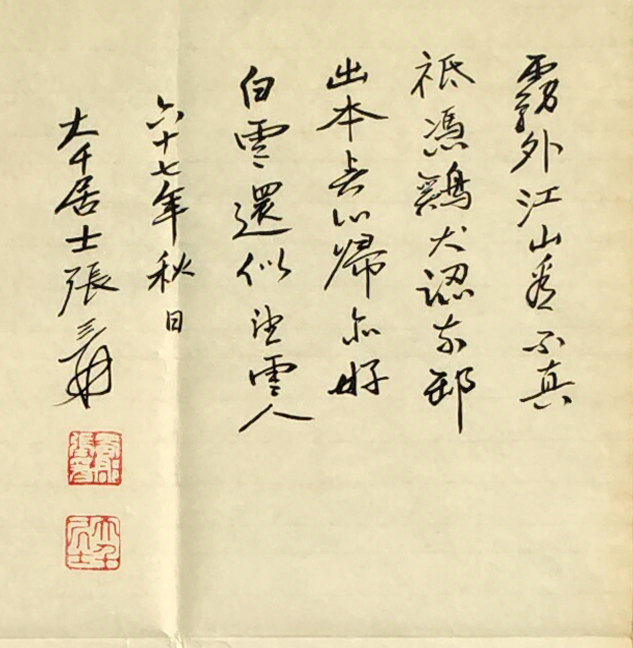 霧外江山看不真
祗憑鷄犬認前邨
出本無心歸亦好
白雲還似望雲人
六十七年秋日
大千居士張爰
蜀郡張爰
大千居士